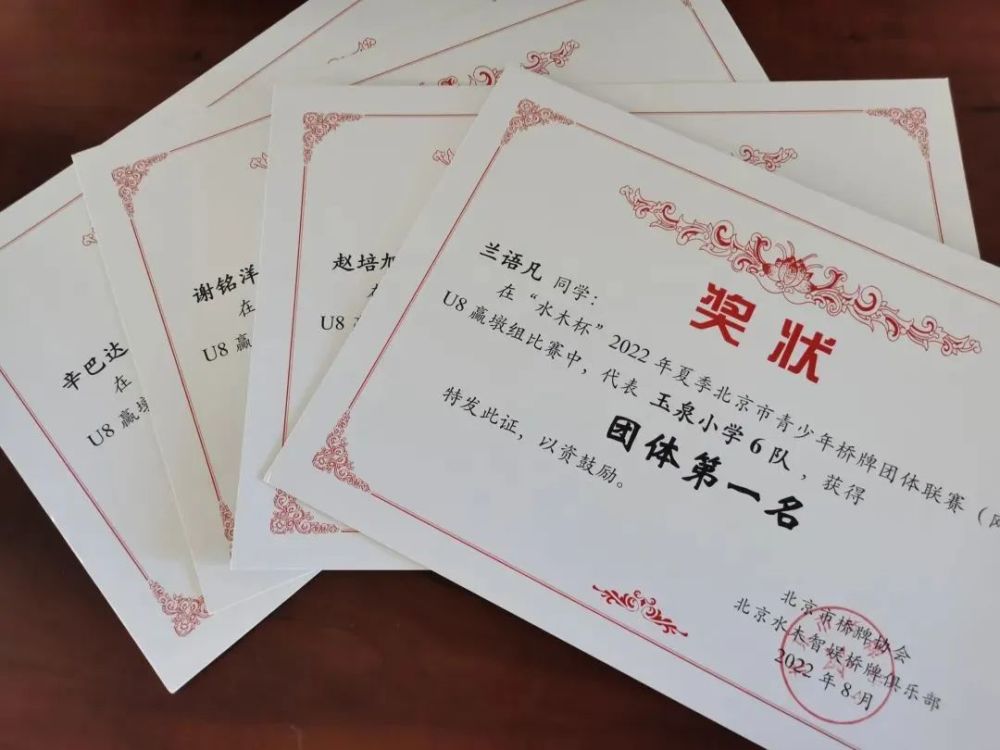 奖状
兰语凡 同学：
在“水木杯”2022年夏季北京市青少年桥牌团体联赛（
U8 赢墩组比赛中，代表 玉泉小学6队 ，获得
团体第一名
特发此证，以资鼓励。
北京市桥牌协会
北京水木智娱桥牌俱乐部
2022年8月
赵培旭
U8
谢铭洋
在
U8 赢
辛巴达
在
U8 赢墩